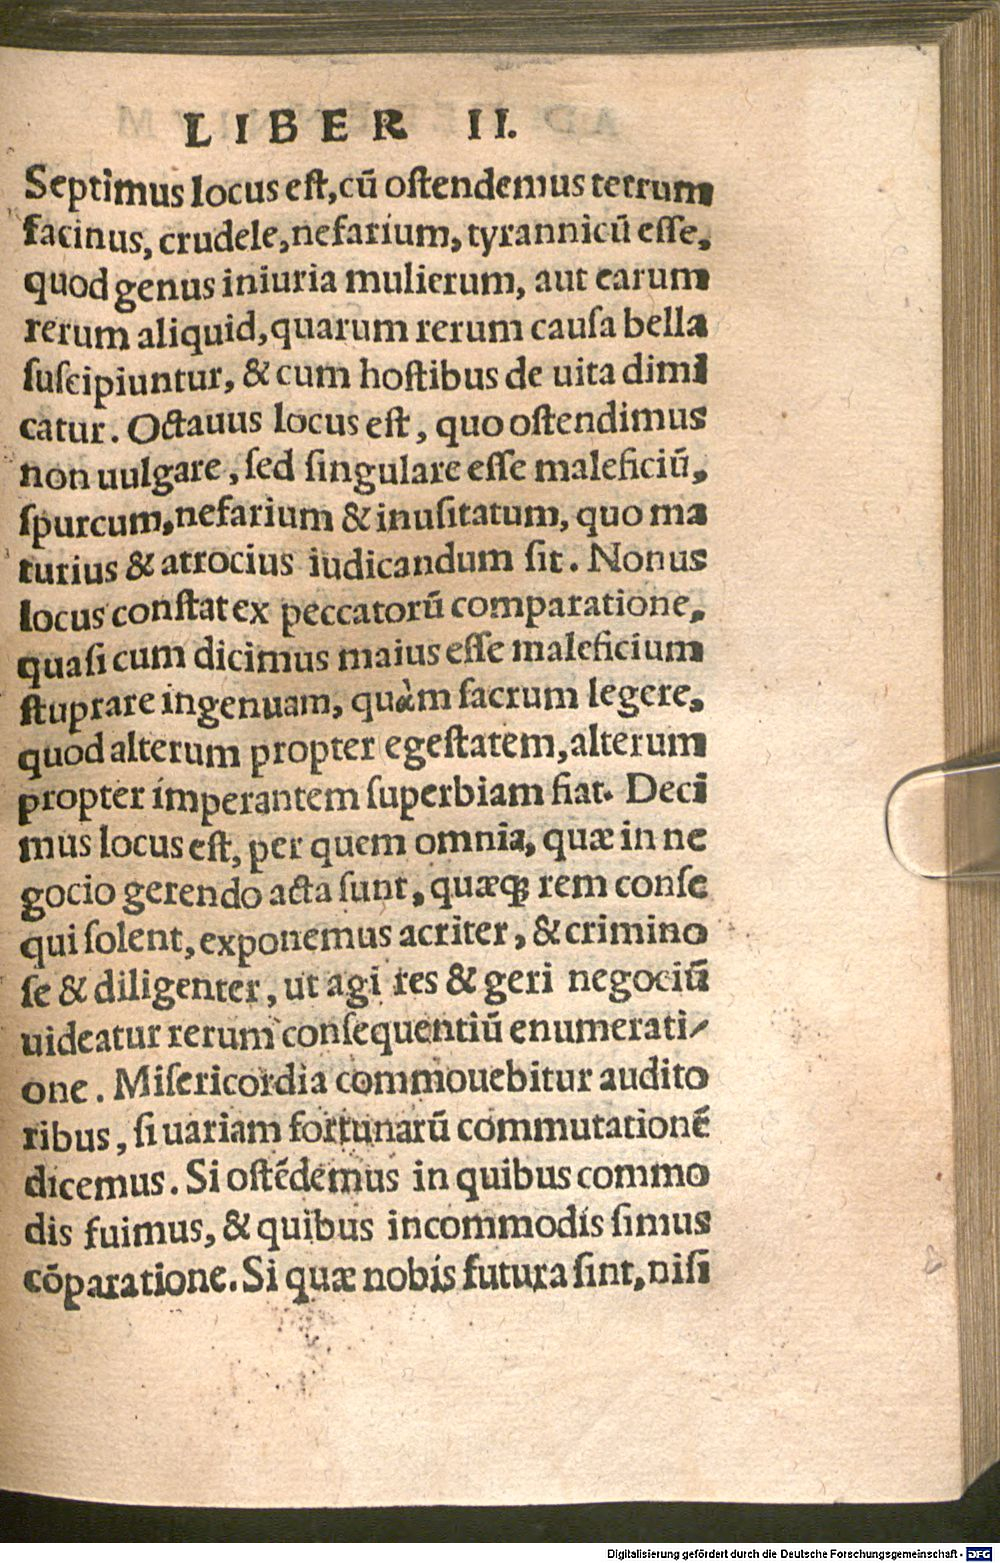 LIBER II.
Septimus locus est, cũ ostendemus tetrum
facinus, crudele, nefarium, tyrannicũ esse,
quod genus iniuria mulierum, aut earum
rerum aliquid, quarum rerum causa bella
suscipiuntur, & cum hostibus de uita dimi
catur. Octauus locus est, quo ostendimus
non uulgare, sed singulare esse maleficiũ,
spurcum, nefarium & inusitatum, quo ma
turius & atrocius iudicandum sit. Nonus
locus constat ex peccatorũ comparatione,
quasi cum dicimus maius esse maleficium
stuprare ingenuam, quàm sacrum legere,
quod alterum propter egestatem, alterum
propter imperantem superbiam fiat. Deci
mus locus est, per quem omnia, quæ in ne
gocio gerendo acta sunt, quæꝙ rem conse
qui solent, exponemus acriter, & crimino
se & diligenter, ut agi res & geri negociũ
uideatur rerum consequentiũ enumerati-
one. Misericordia commouebitur audito
ribus, si uariam fortunarũ commutationẽ
dicemus. Si ostẽdemus in quibus commo
dis fuimus, & quibus incommodis simus
cõparatione. Si quæ nobis futura sint, nisi
Digitalisierung gefördert durch die Deutsche Forschungsgemeinschaft - DFG